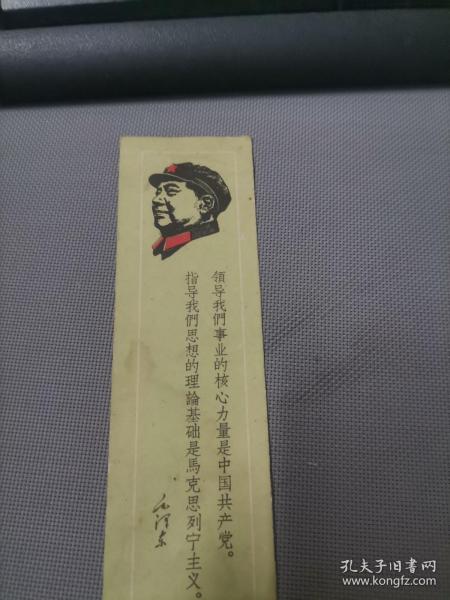 領导我們事业的核心力量是中国共产党。
指导我們思想的理論基础是馬克思列宁主义。
毛泽东
孔夫子旧书网
www.kongfz.com